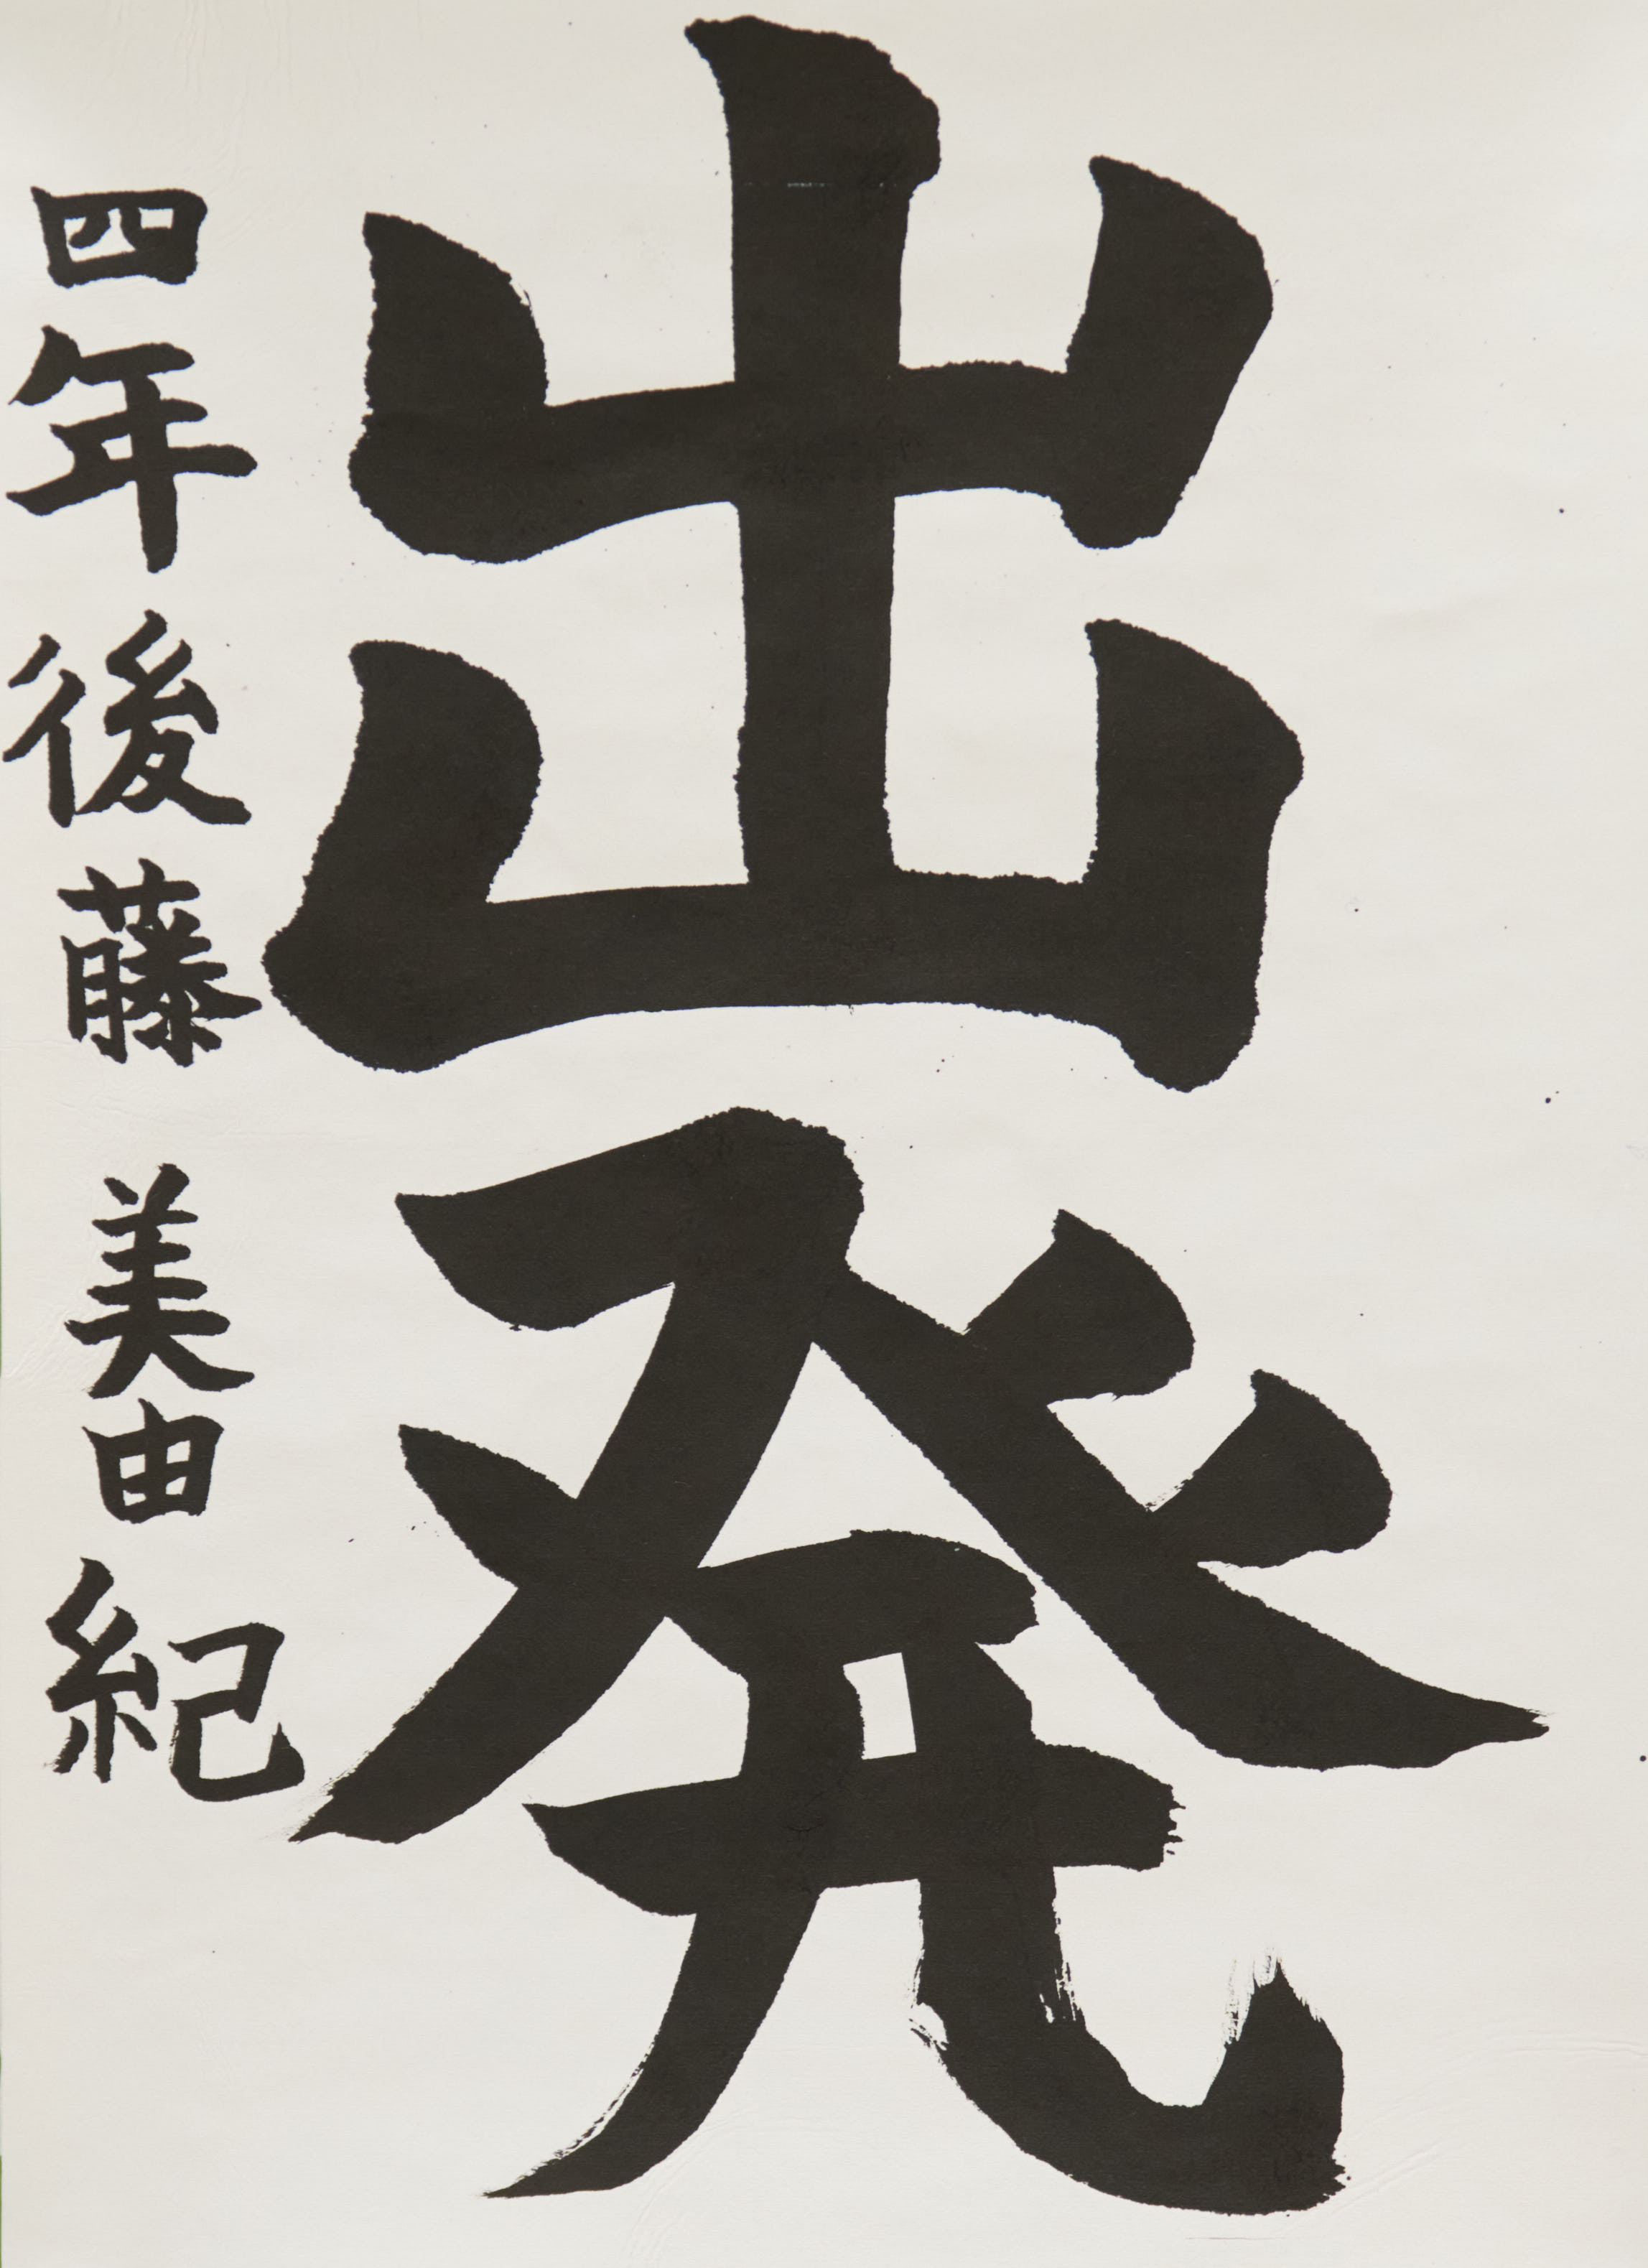 出発
四年後藤美由紀